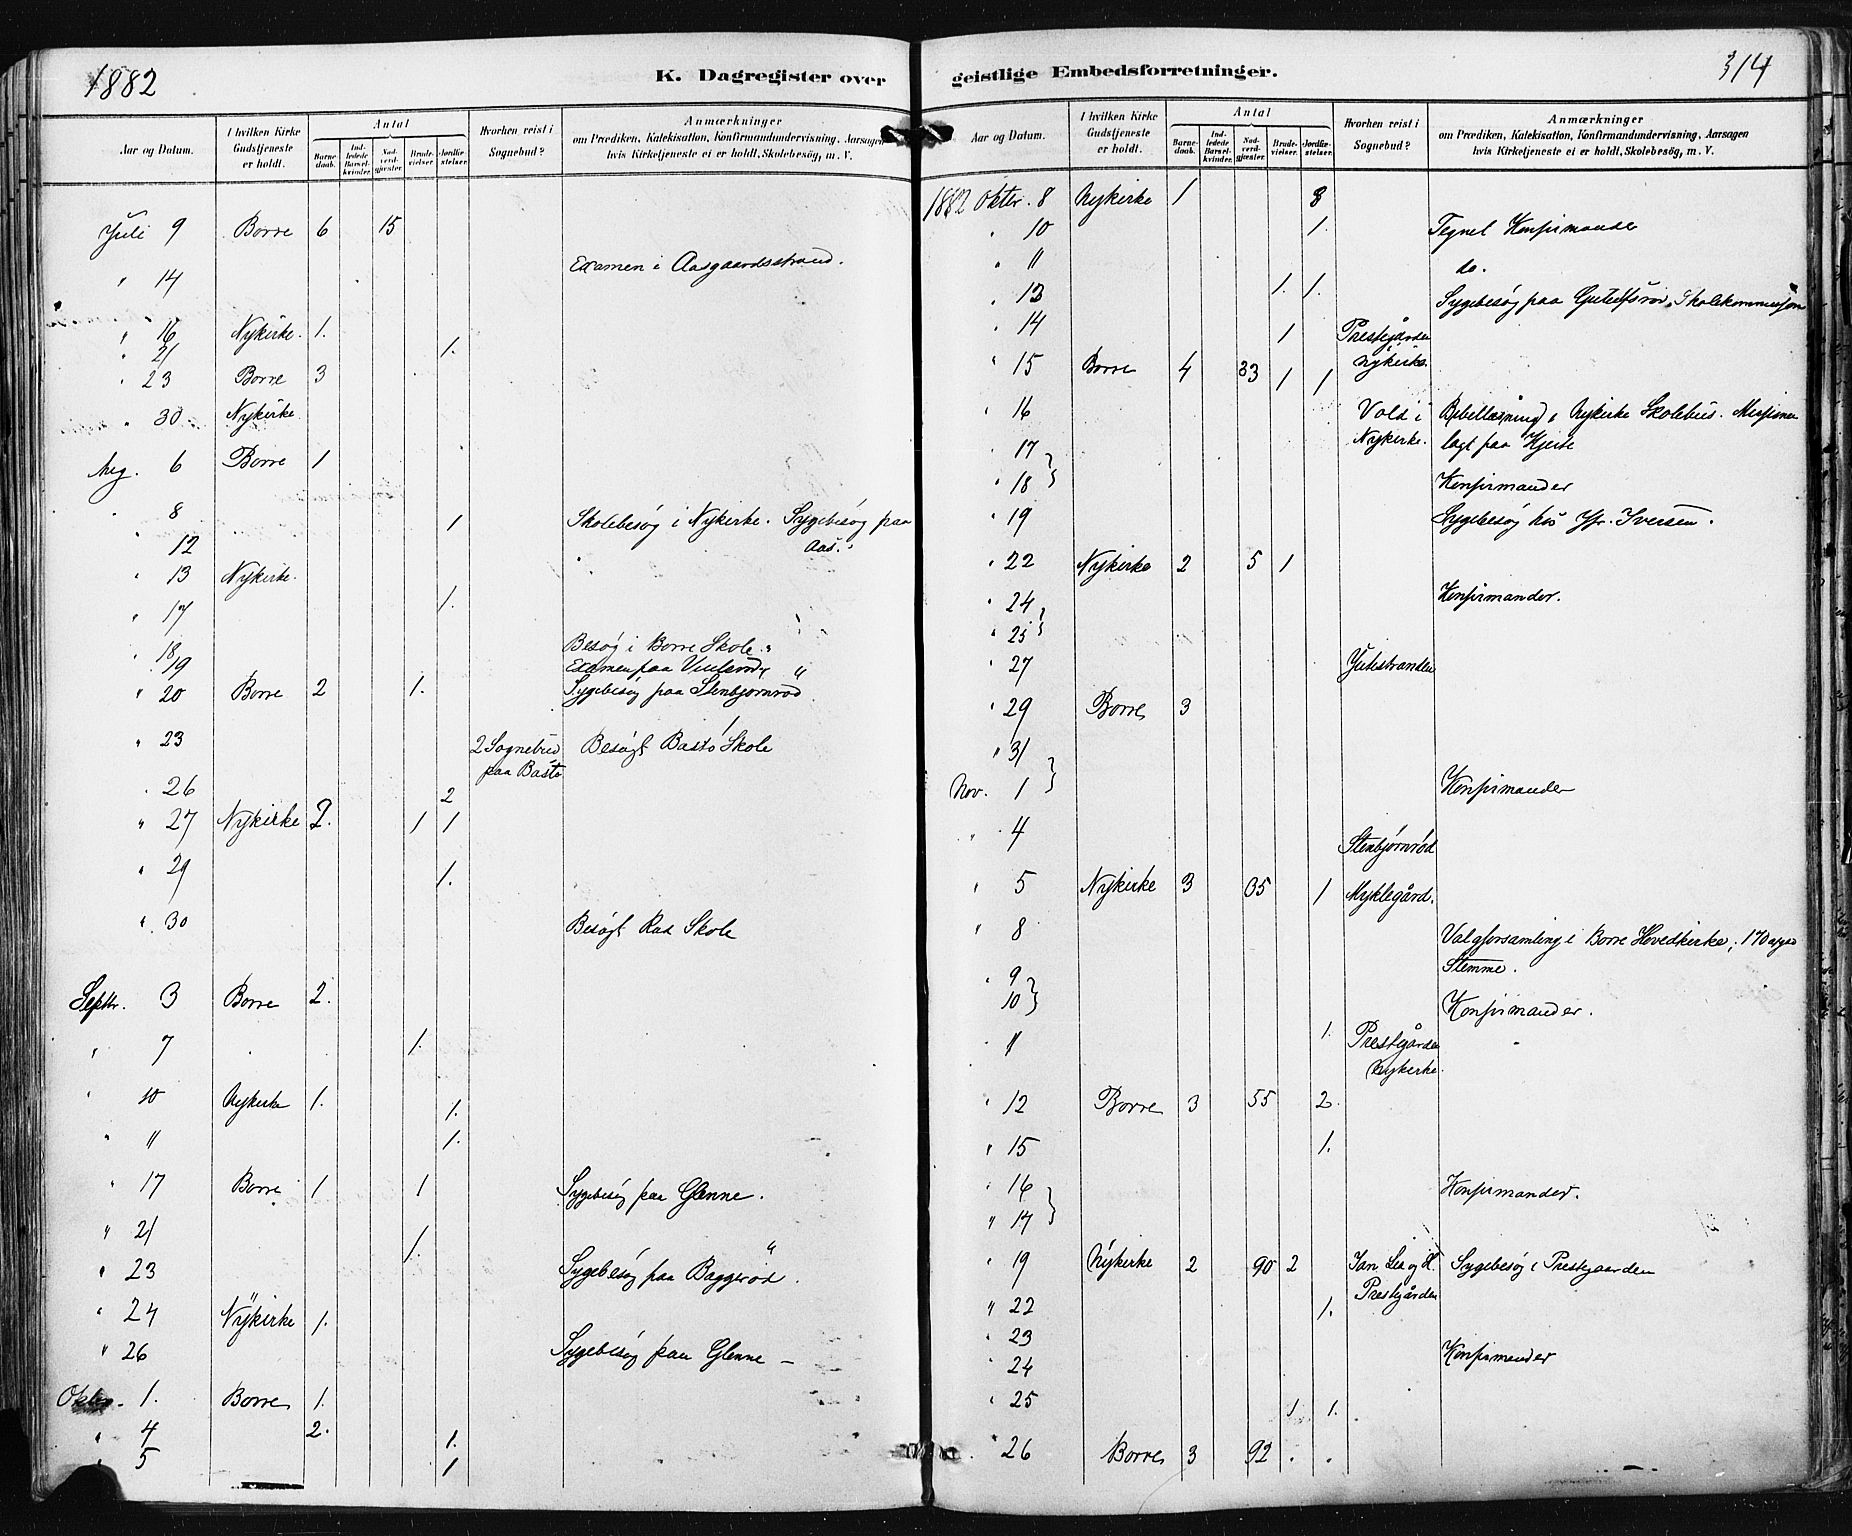 1882
K. Dagregister over
Aar og Datum.
I hvilken Kirke Gudstjeneste er holdt.
Antal
Barne-daab.
Ind-ledede Barsel-kvinder.
Nad-verd-gjester.
Brude-vielser.
Jordfæ-stelser.
Hvorhen reist i Sognebud?
Anmærkninger
om Prædiken, Katekisation, Konfirmandundervisning, Aarsagen
hvis Kirketjeneste ei er holdt, Skolebesög, m. V.
Juli 9 Borre 6 15
" 14 Examen i Aasgaardsstrand.
" 16 Nykirke. 1.
" 21 1.
" 23 Borre 3
" 30 Nykirke
Aug. 6 Borre 1
" 8 1 Skolebesög i Nykirke. Sygebesög paa
" 12 Aas.
" 13 Nykirke.
" 17 1.
" 18 Besög i Borre Skole "
" 19 Examen paa
" 20 Borre 2 1. Sygebesög paa Stenbjørnröd
" 23 2 Sognebud Besögt Bastö Skole
paa Bastö
" 26 2
" 27 Nykirke 2. 1 1
" 29 1.
" 30 Besögt Rød Skole
Septbr. 3 Borre 2.
" 7 1.
" 10 Nykirke 1. 1.
" 11 1.
" 17 Borre 1 1 Sygebesög paa Glenne.
" 21 1
1.
" 23 Sygebesög paa Baggeröd.
" 24 Nykirke 1.
" 26 Sygebesög paa Glenne –
Oktbr. 1. Borre 1.
" 4 2. 1.
" 5 1
geistlige Embedsforretninger.
314
Aar og Datum.
I hvilken Kirke Gudstjeneste er holdt.
Antal
Barne-daab.
Ind-ledede Barsel-kvinder.
Nad-verd-gjester.
Brude-vielser.
Jordfæ-stelser.
Hvorhen reist i Sognebud?
Anmærkninger
om Prædiken, Katekisation, Konfirmandundervisning, Aarsagen
hvis Kirketjeneste ei er holdt, Skolebesög, m. V.
1882 Oktbr. 8 Nykirke 1 3
" 10 1. Tegnet Konfirmander
" 11 do.
" 13 1. 1. Sygebesög paa Skolekommission
" 14 1 Prestegården
Nykirke.
" 15 Borre 4 33 1 1
" 16 Vold i Bibellæsning i Nykirke Skolehus.
Nykirke. lagt paa Hjerte
" 17 }
" 18 } Konfirmander
" 19 Sygebesög hos Iversen.
" 22 Nykirke 2 5 1
" 24 } Konfirmander.
" 25 }
" 27
" 29 Borre 3
" 31 }
Nov. 1 } Konfirmander
" 4 Stenbjørnrød
" 5 Nykirke 3 35 1 Myklegård.
" 8 Valgforsamling i Borre Hovedkirke; 170
Stemme.
" 9 }
10 } Konfirmander.
" 11 1. Prestegården
Nykirke.
" 12 Borre 3 55 2.
" 15 1.
" 16 } Konfirmander.
" 17 }
" 19 Nykirke 2 90 2 Sygebesög i Prestegaarden
Prestegården
" 22 1.
" 23
" 24 Konfirmander
" 25 1 1.
" 26 Borre 3 92 . .